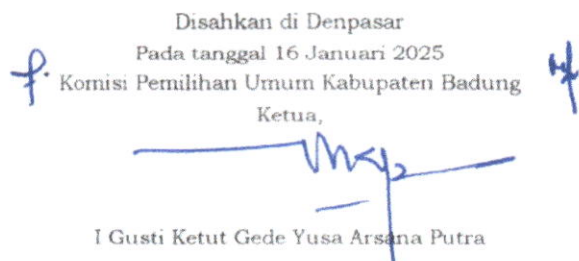 Disahkan di Denpasar
Pada tanggal 16 Januari 2025
Komisi Pemilihan Umum Kabupaten Badung
Ketua,
I Gusti Ketut Gede Yusa Arsana Putra